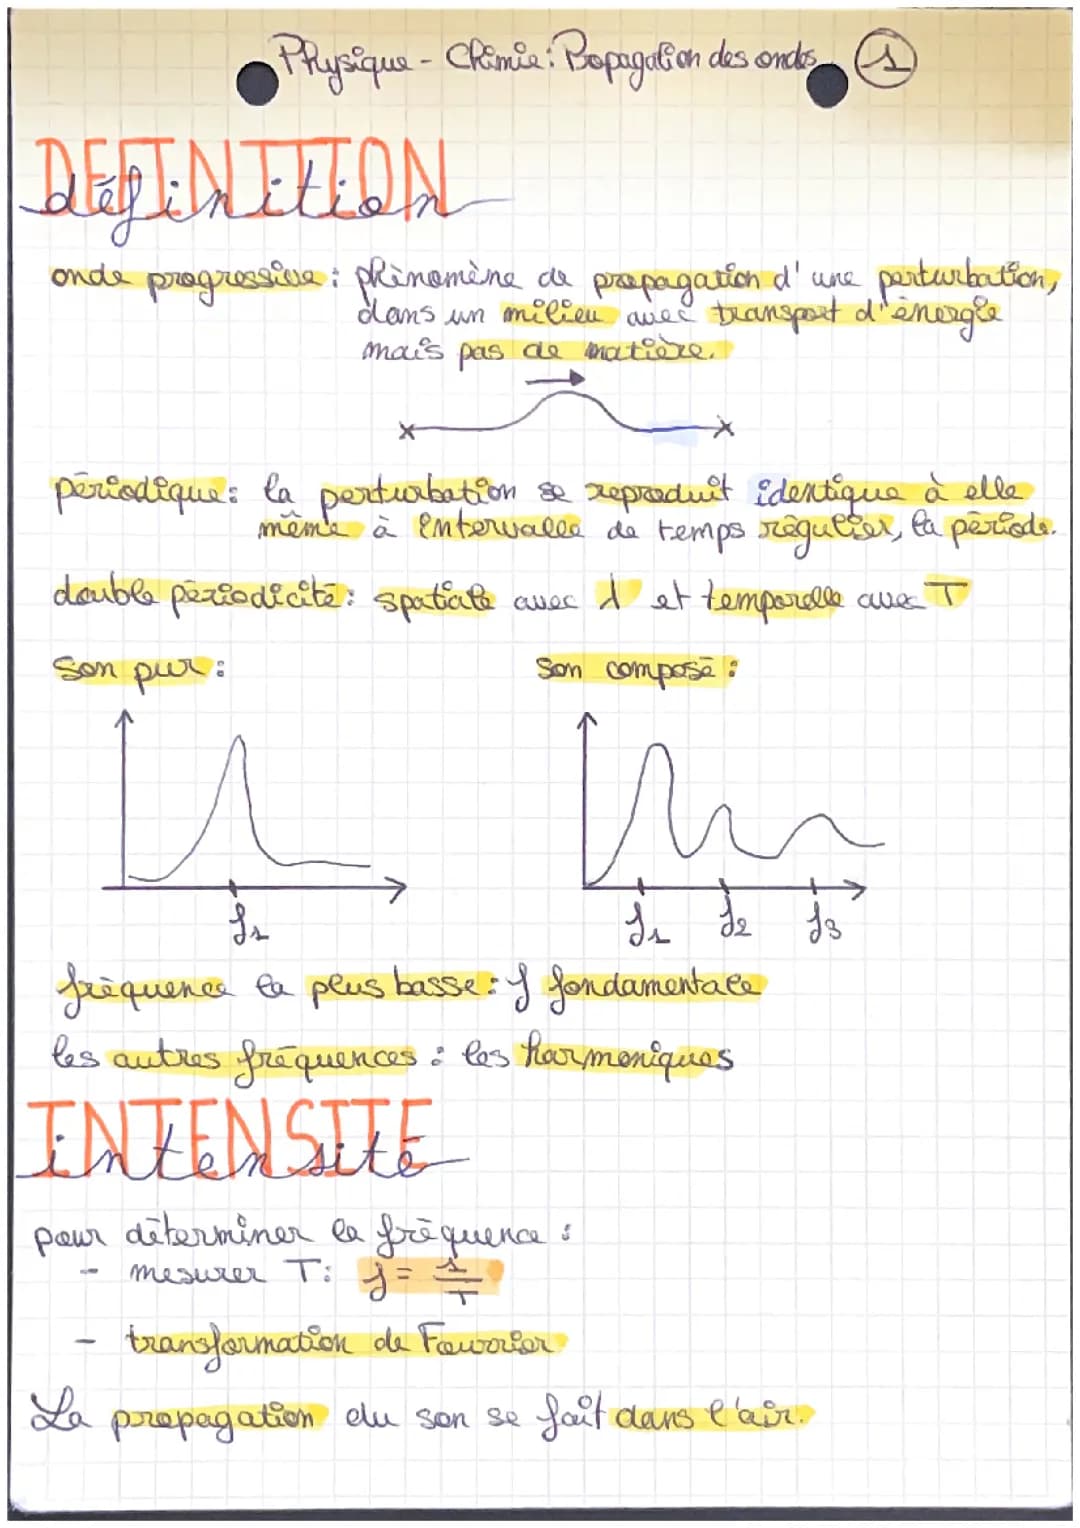 Physique - Chimie : Propagation des ondes 1
DEFINITION
définition
onde progressive : phénomène de propagation d'une perturbation,
dans un milieu avec transport d'énergie
mais pas de matière.
périodique : la perturbation se reproduit identique à elle
même à intervalle de temps régulier, la période.
double périodicité : spatiale avec λ et temporelle avec T
son pur :
son composé :
f1
f1 f2 f3
fréquence la plus basse : f fondamentale
les autres fréquences : les harmoniques
INTENSITE
intensité
pour déterminer la fréquence :
- mesurer T : f = 1/T
- transformation de Fourrier
La propagation du son se fait dans l'air.